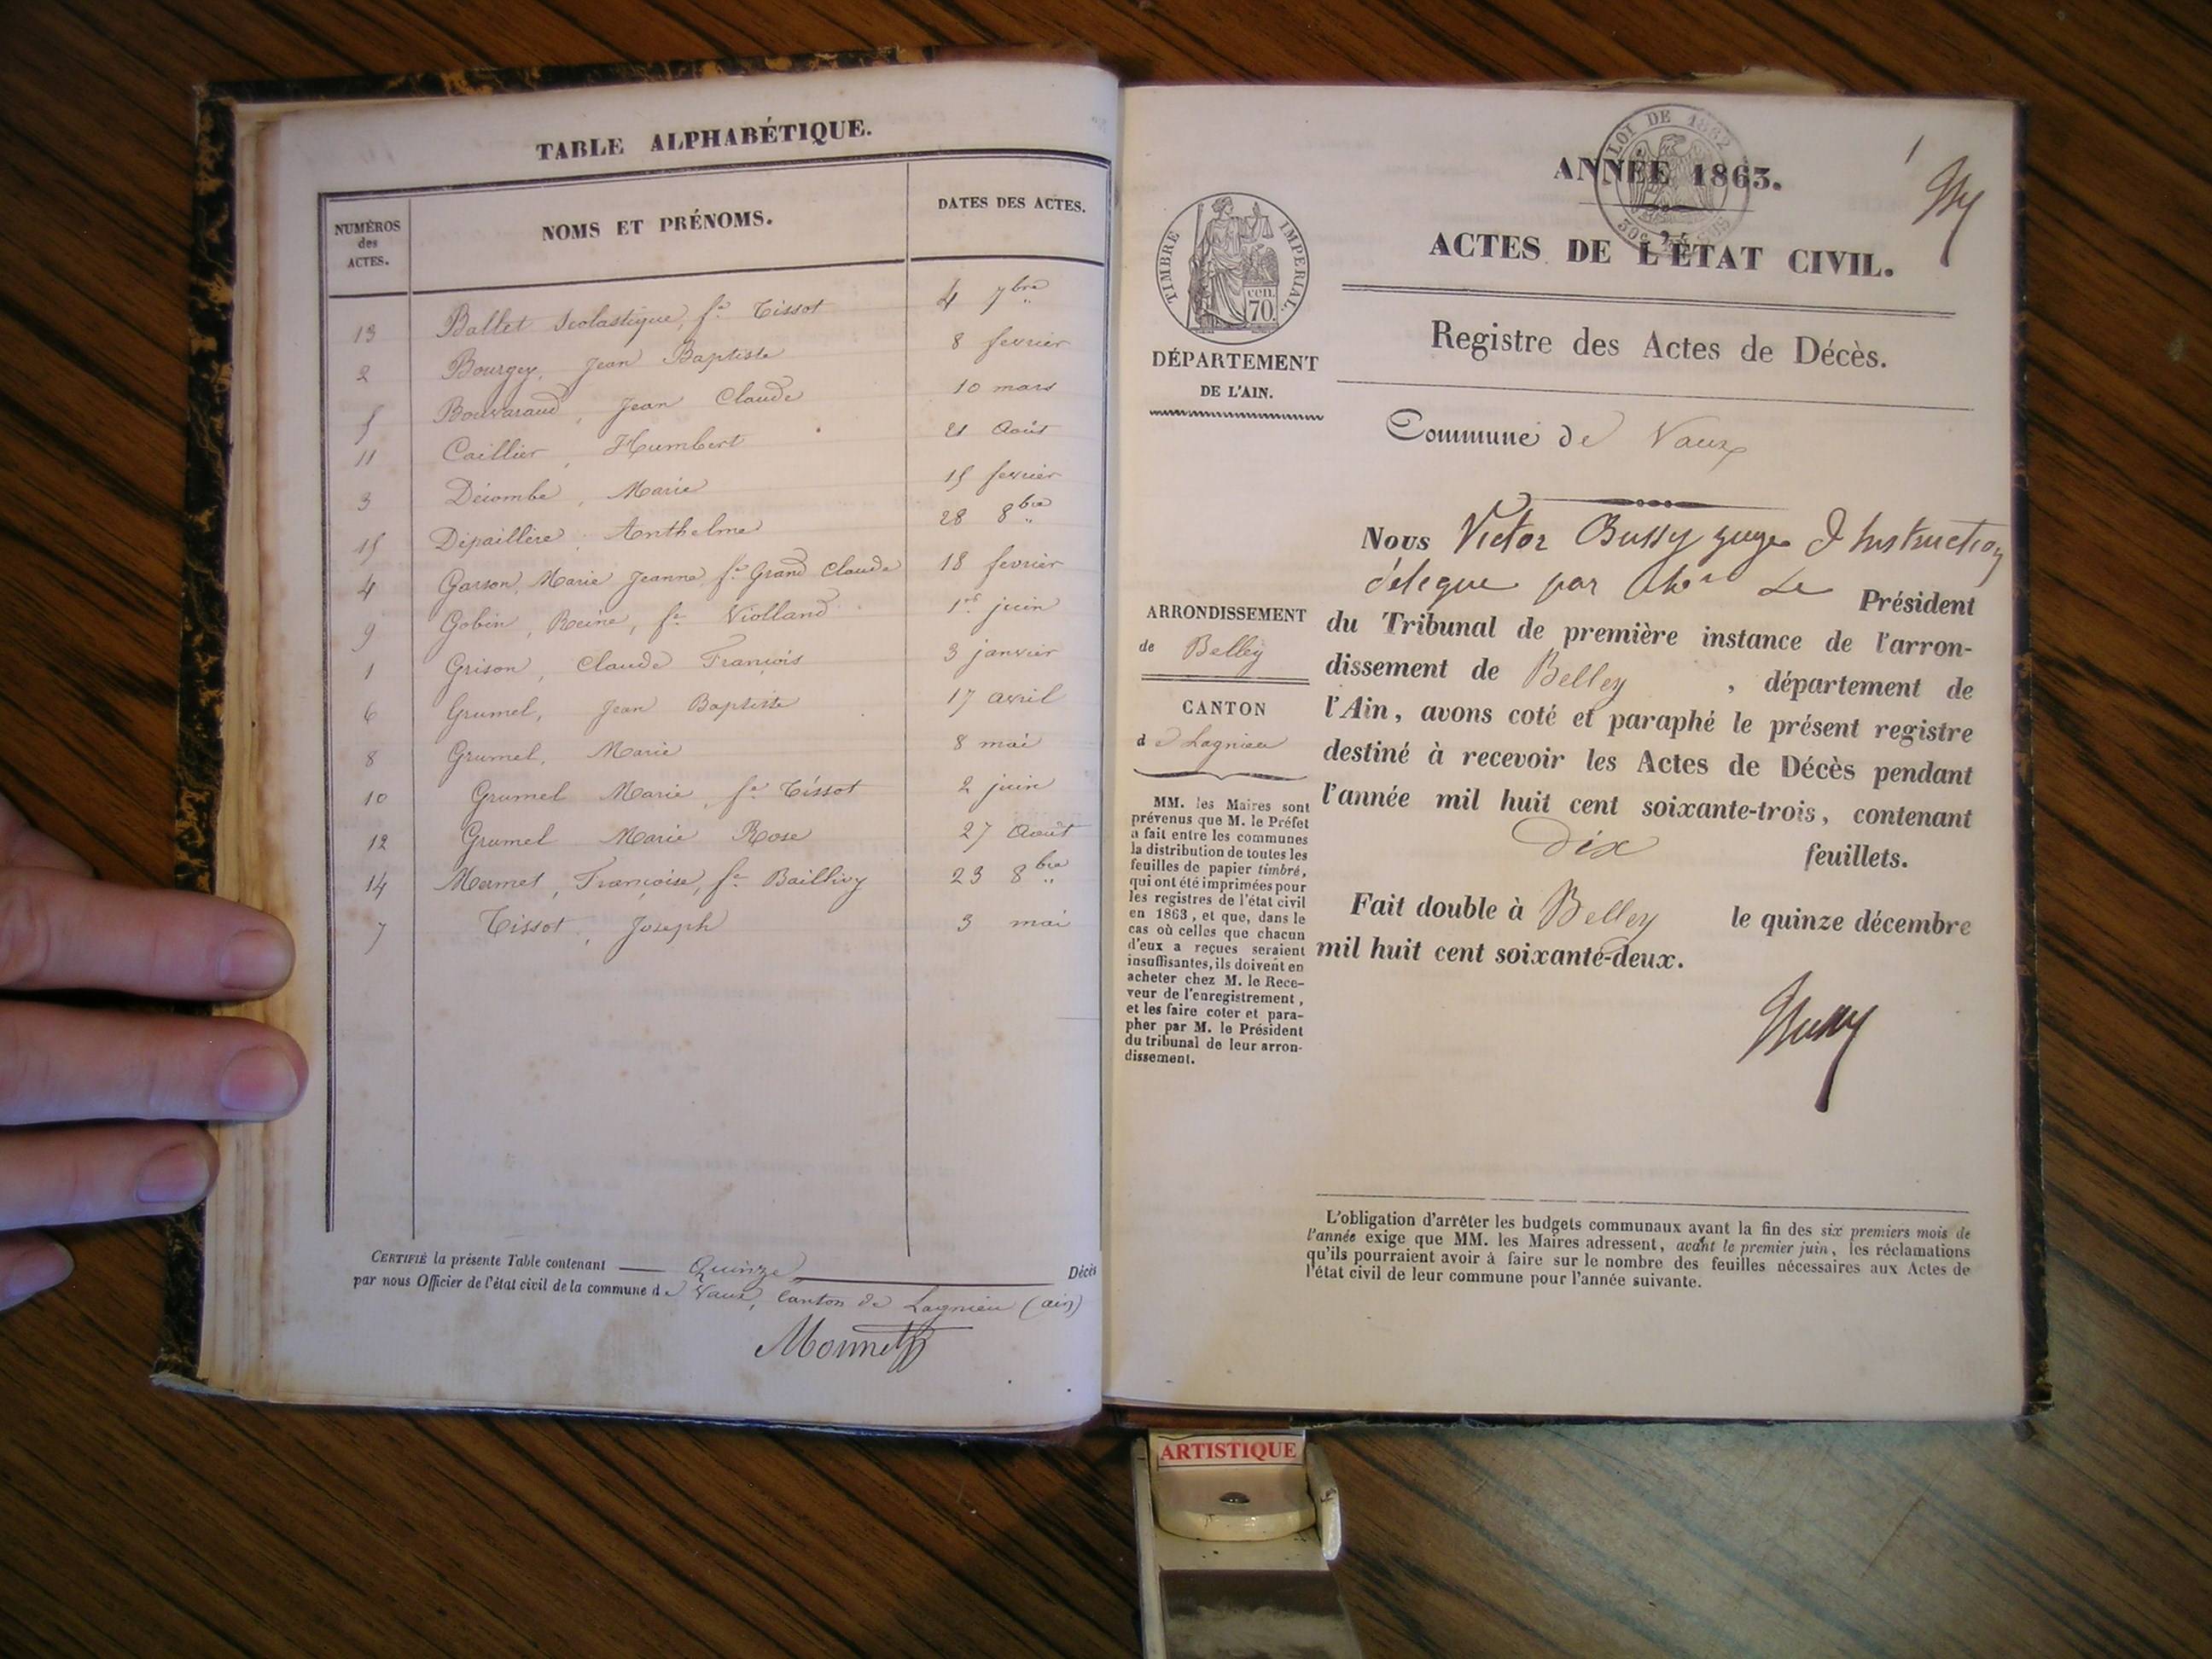 TABLE ALPHABÉTIQUE.
NUMÉROS des ACTES. NOMS ET PRÉNOMS. DATES DES ACTES.
13 Ballet Scolastique, fe Tissot 4 7bre
2 Bourgey, Jean Baptiste 8 fevrier
5 Bouvaraud, Jean Claude 10 mars
11 Caillier, Humbert 21 Août
3 Décombe, Marie 15 fevrier
15 Dépaillère, Anthelme 28 8bre
4 Garson, Marie Jeanne, fe Grand Claude 18 fevrier
9 Gobin, Reine, fe Violland 1er juin
1 Grison, Claude François 3 janvier
6 Grumel, Jean Baptiste 17 avril
8 Grumel, Marie 8 mai
10 Grumel Marie, fe Tissot 2 juin
12 Grumel Marie Rose 27 Août
14 Mermet, Françoise, fe Baillivy 23 8bre
7 Tissot, Joseph 3 mai
CERTIFIÉ la présente Table contenant Quinze Décès
par nous Officier de l'état civil de la commune de Vaux, Canton de Lagnieu (ain)
Monnet
LOI DE 1862
ANNÉE 1863.
ACTES DE L'ÉTAT CIVIL.
TIMBRE IMPERIAL.
70 cen.
DÉPARTEMENT
DE L'AIN.
Registre des Actes de Décès.
Commune de Vaux
ARRONDISSEMENT
de Belley
CANTON
de Lagnieu
MM. les Maires sont
prévenus que M. le Préfet
a fait entre les communes
la distribution de toutes les
feuilles de papier timbré,
qui ont été imprimées pour
les registres de l'état civil
en 1863, et que, dans le
cas où celles que chacun
d'eux a reçues seraient
insuffisantes, ils doivent en
acheter chez M. le Rece-
veur de l'enregistrement,
et les faire coter et para-
pher par M. le Président
du tribunal de leur arron-
dissement.
Nous Victor Bussy juge d'Instruction
délegue par Mr Le Président
du Tribunal de première instance de l'arron-
dissement de Belley, département de
l'Ain, avons coté et paraphé le présent registre
destiné à recevoir les Actes de Décès pendant
l'année mil huit cent soixante-trois, contenant
dix feuillets.
Fait double à Belley le quinze décembre
mil huit cent soixante-deux.
Bussy
L'obligation d'arrêter les budgets communaux avant la fin des six premiers mois de
l'année exige que MM. les Maires adressent, avant le premier juin, les réclamations
qu'ils pourraient avoir à faire sur le nombre des feuilles nécessaires aux Actes de
l'état civil de leur commune pour l'année suivante.
ARTISTIQUE